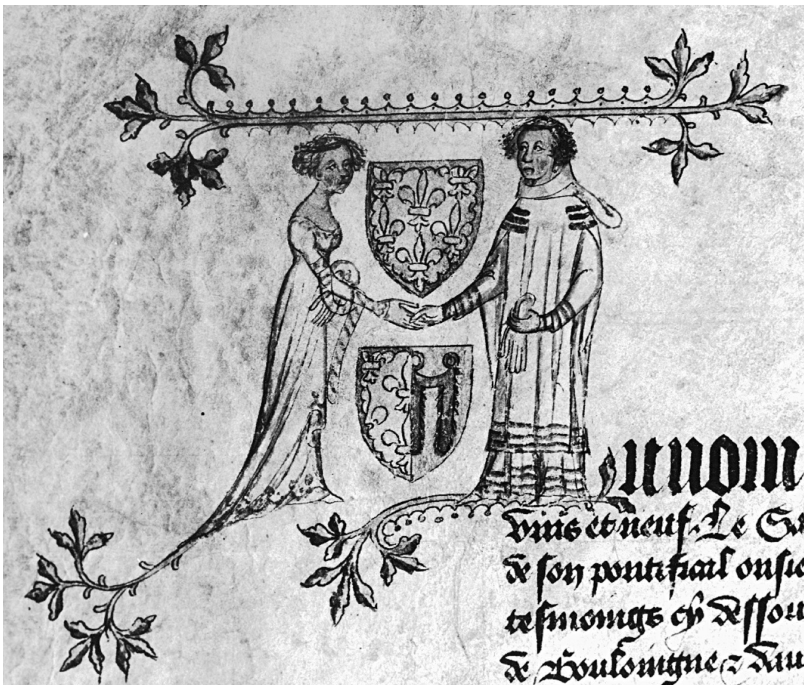 u nom
vins et neuf. Le Sa
de son pontificail onsie
tesmoings cy dessou
de Bouloingne & dau